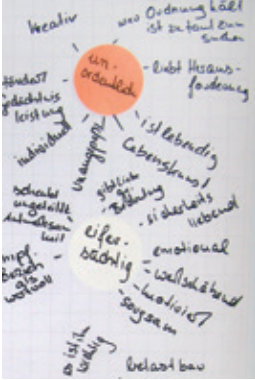 kreativ
wer Ordnung hält
ist zu faul zum
suchen
un-
ordentlich
liebt Heraus-
forderung
fördert
gedächtnis
leistung
individuell
unangepasst
ist lebendig
Lebenskunst
eifer-
süchtig
gibt
Beziehung
sicherheits
liebend
schenkt
ungeteilte
Aufmerksam
keit
Bezieh
als
wertvoll
emotional
wertschätzend
motiviert
sorgsam
es ist ihm
wichtig
belastbar